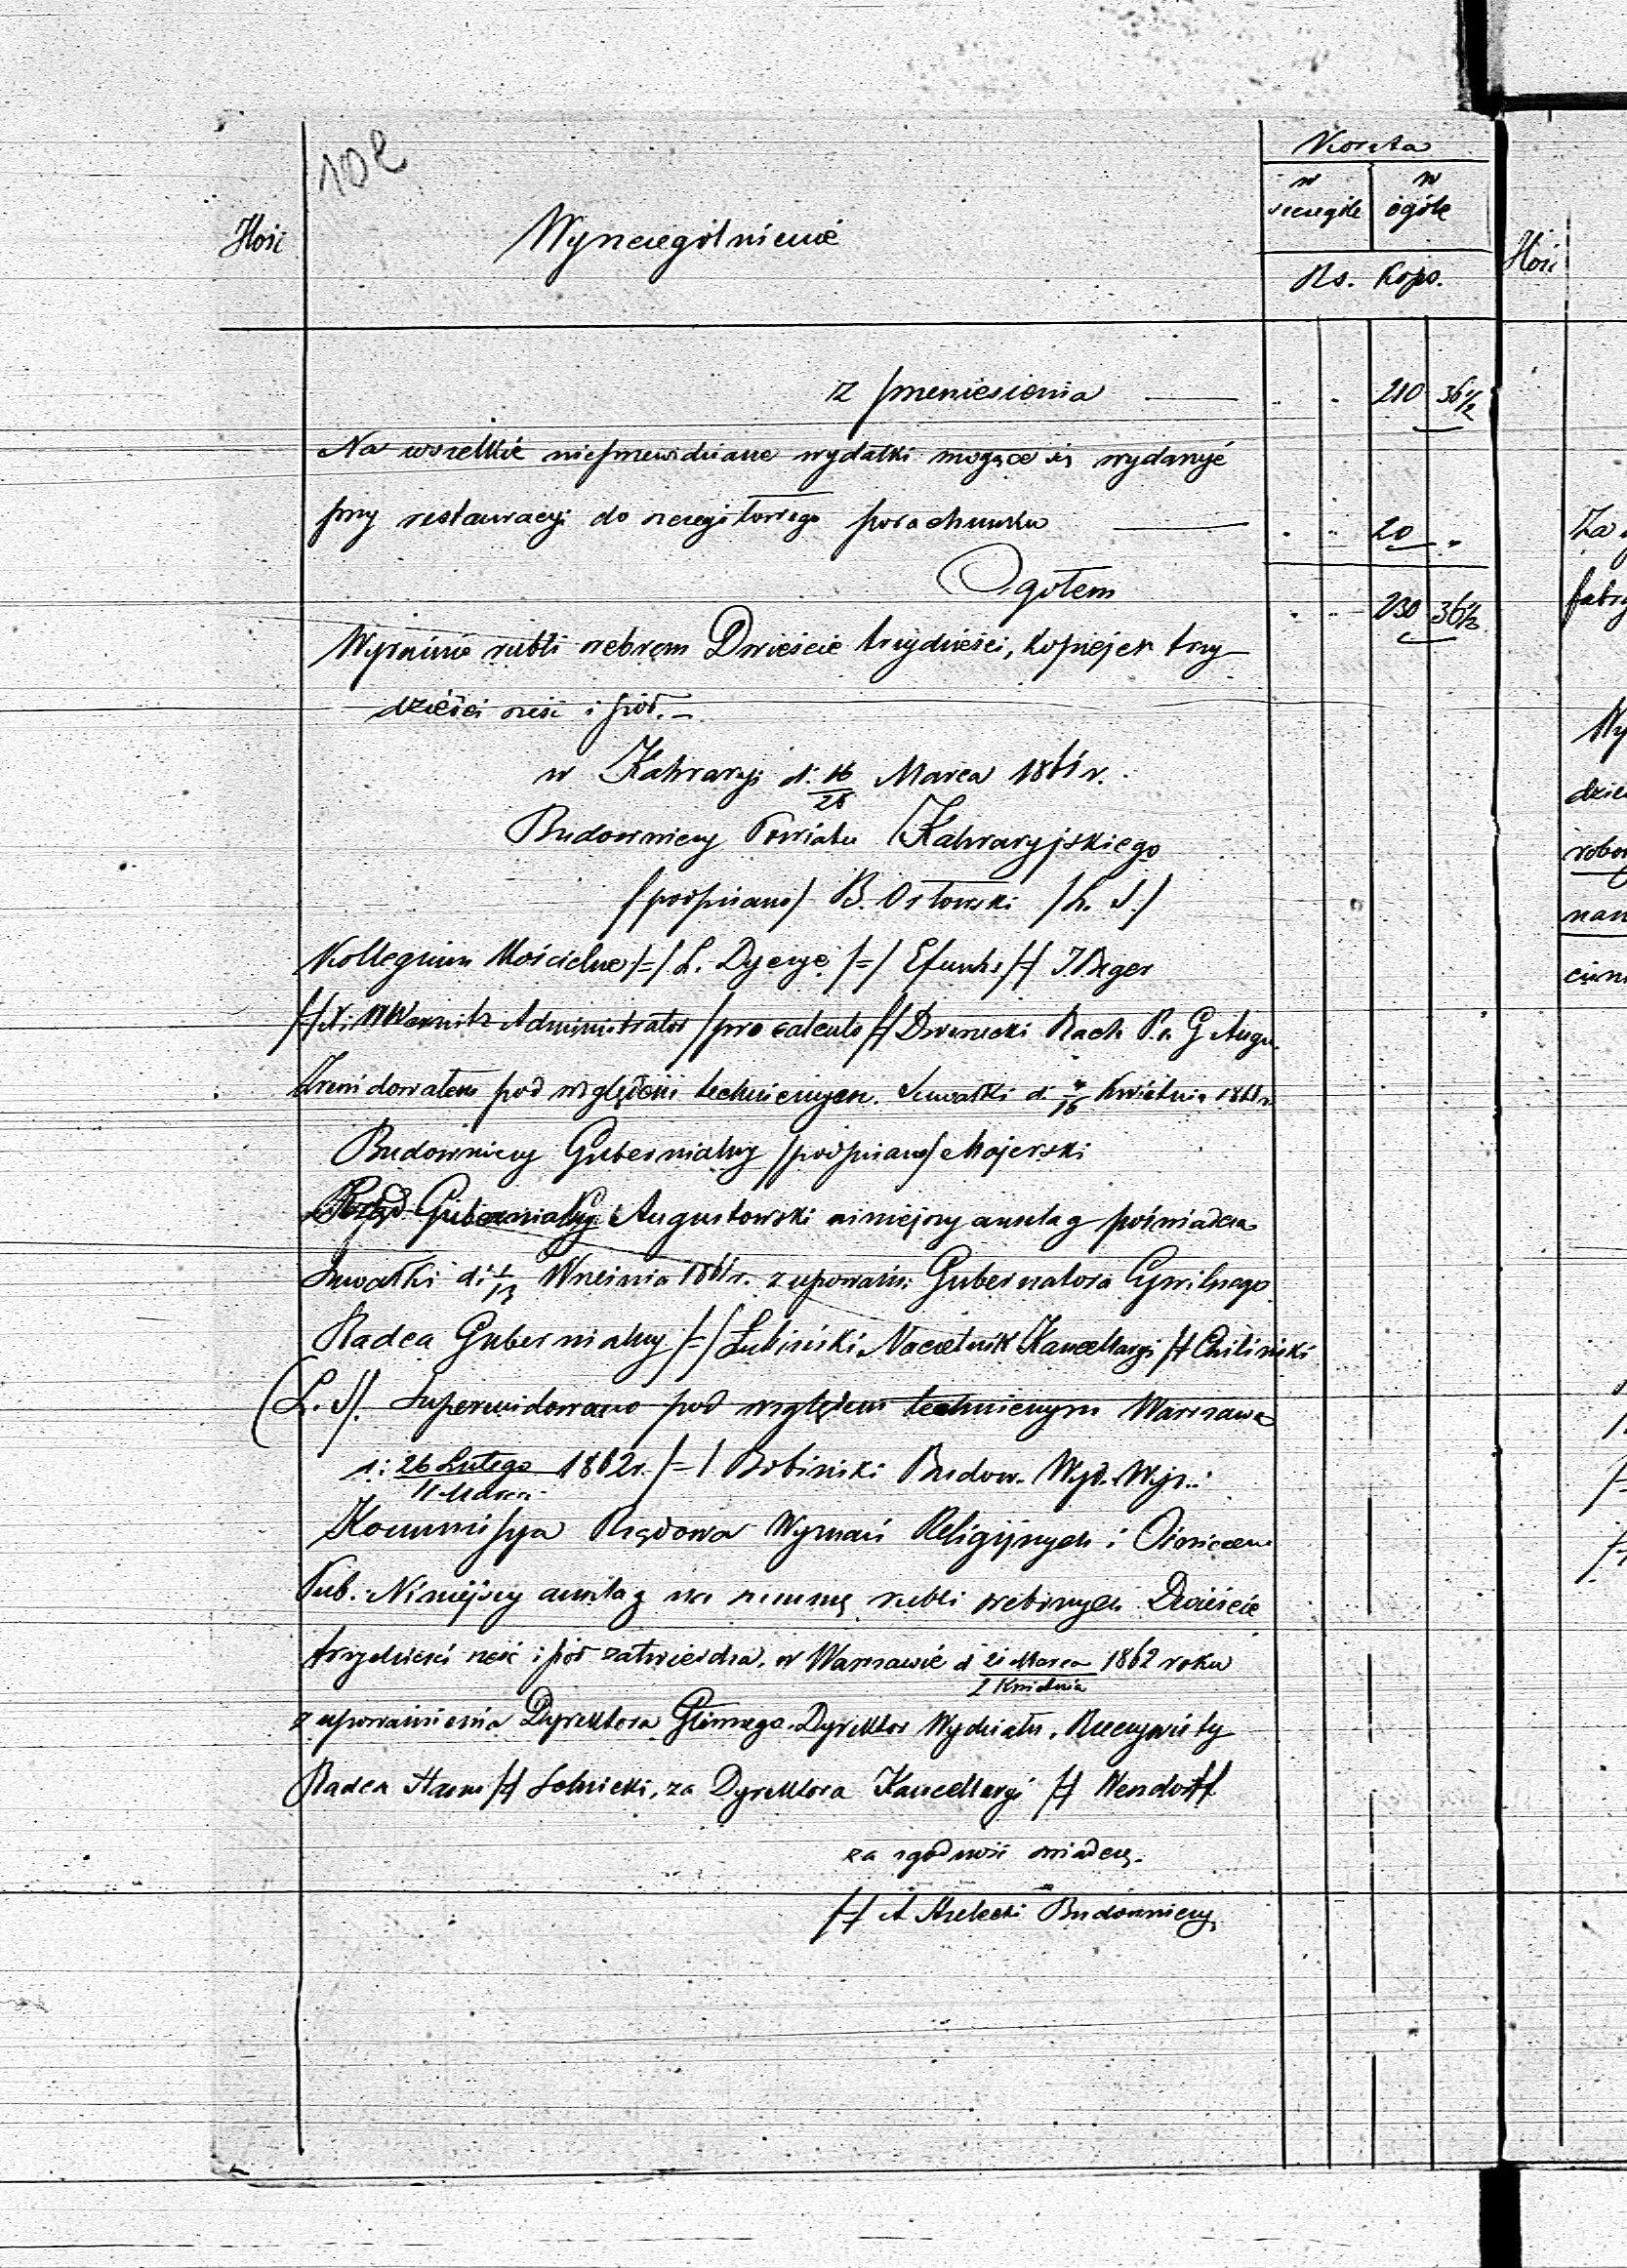 102
Koszta
w szczególe
w ogóle
Ilość
Wyszczególnienie
Rs. Kops.
Ilość
z przeniesienia 210 36 1/2
Na wszelkie nieprzewidziane wydatki mogące się wydarzyć
przy restauracyi do szczegółowego porachunku 20
Ogółem 230 36 1/2
Wyraźnie rubli srebrem Dwieście trzydzieści, kopiejek trzy-
dzieści sześć i pół.-
w Kalwaryi d. 16/28 Marca 1861 r.
Budowniczy Powiatu Kalwaryjskiego
/podpisano/ B. Orłowski /L. S./
Kollegium Kościelne /=/ L. /=/ /=/
/=/ Administrator /pro calculo /=/ Rach. G. Augu.
Zrewidowałem pod względem technicznym. Suwałki d. Kwietnia 1861 r.
Budowniczy Gubernialny /podpisano/ Majerski
Rząd Gubernialny Augustowski niniejszy anszlag poświadcza
Suwałki d: 1/13 Września 1861 r. z upoważn: Gubernatora Cywilnego
Radca Gubernialny /=/ Lubiński Naczelnik Kancellaryi /=/ Chiliński
(L. S). Superwidowano pod względem technicznym Warszawa
d: 26 Lutego/11 Marca 1862 r. /=/ Bobiński Budow. Wyd. Wyz.:
Kommissya Rządowa Wyznań Religijnych i Oświecen.
Pub. Niniejszy anszlag na summę rubli srebrnych Dwieście
trzydzieści sześć i pół zatwierdza. w Warszawie d 21 Marca/2 Kwietnia 1862 roku
z upoważnienia Dyrektora Głównego. Dyrektor Wydziału, Rzeczywisty
Radca Stanu /=/ za Dyrektora Kancellaryi /=/ Wendorff
za zgodność świadczę.
/=/ A Budowniczy